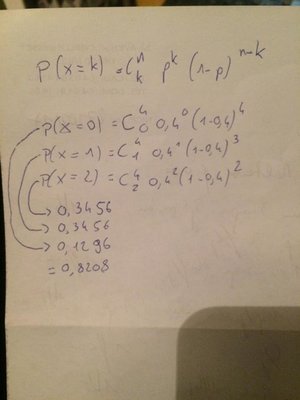 P(x=k) = C^n_k p^k (1-p)^n-k
P(x=0) = C^4_0 0,4^0 (1-0,4)^4
P(x=1) = C^4_1 0,4^1 (1-0,4)^3
P(x=2) = C^4_2 0,4^2 (1-0,4)^2
0,3456
0,3456
0,1296
= 0,8208